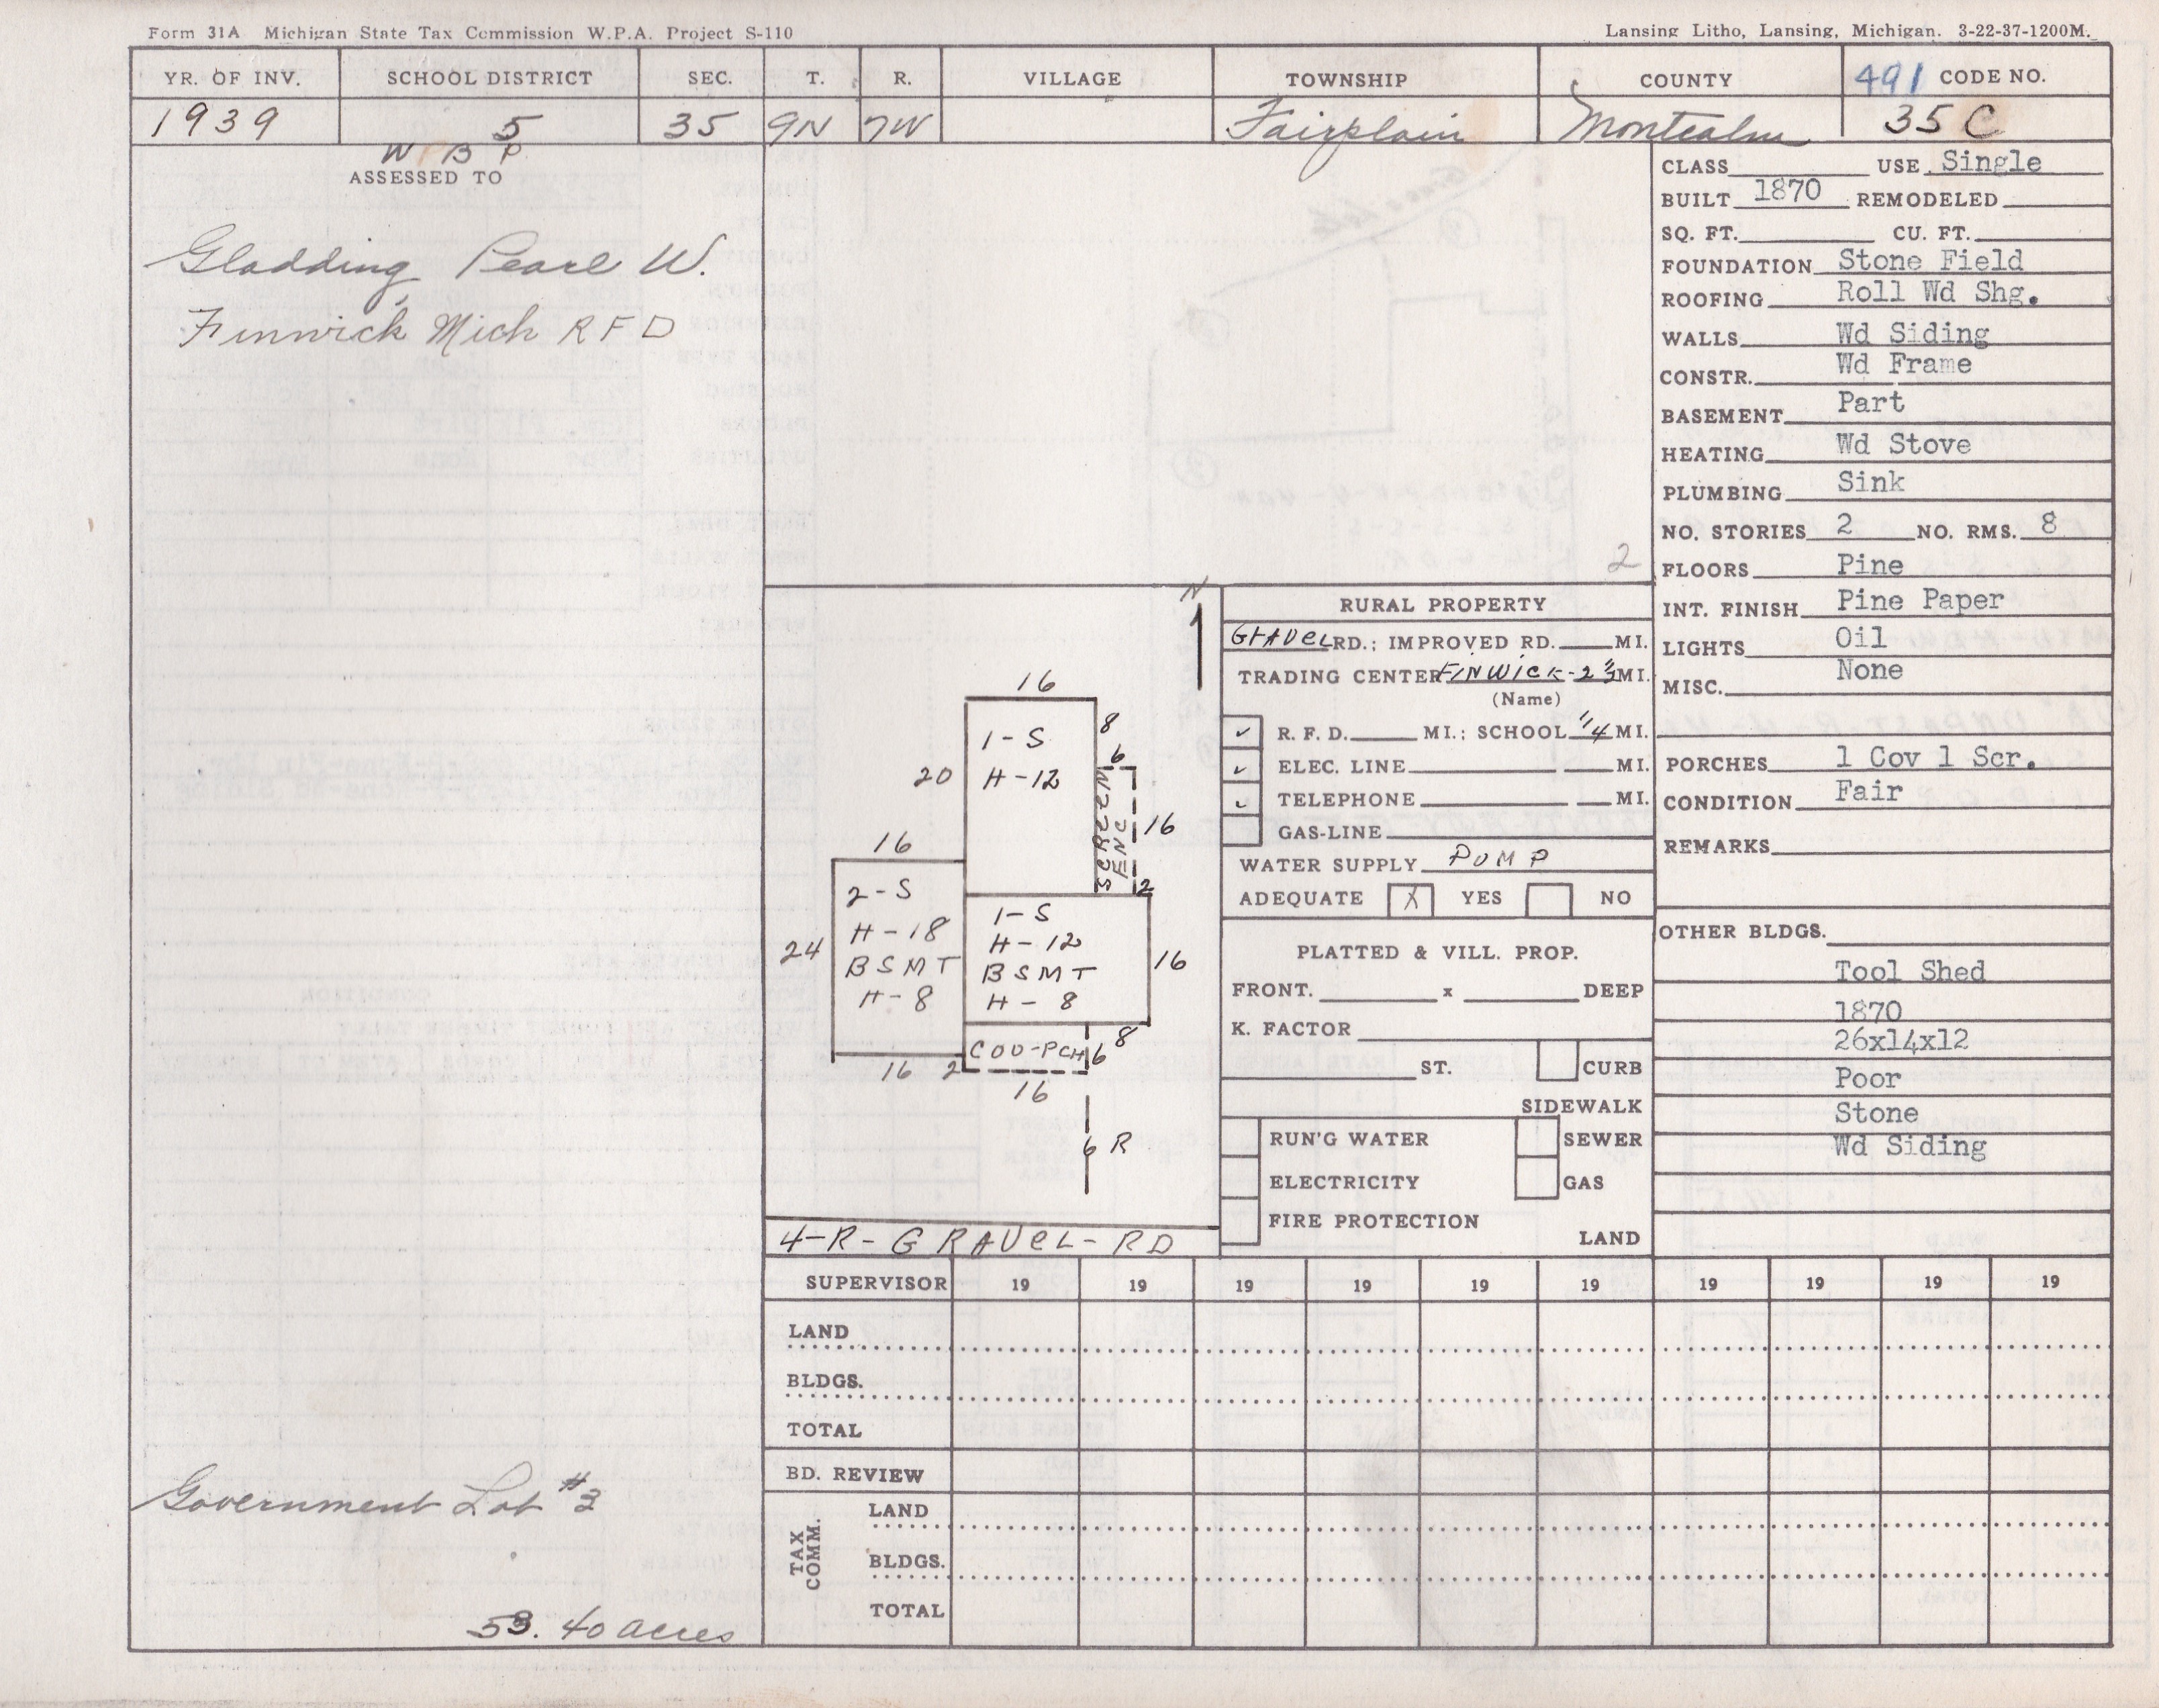 Form 31A Michigan State Tax Commission W.P.A. Project S-110
Lansing Litho, Lansing, Michigan. 3-22-37-1200M.
YR. OF INV. SCHOOL DISTRICT SEC. T. R. VILLAGE TOWNSHIP COUNTY 491 CODE NO.
1939 5 35 9N 7W Fairplain Montcalm 35 C
W B P
ASSESSED TO
Gladding, Pearl W.
Finwick Mich R F D
Government Lot #3
53.40 acres
2
N
16
1-S
H-12
20
8
6
SCREEN
ENC
16
2
16
2-S
H-18
BSMT
H-8
24
1-S
H-12
BSMT
H-8
16
8
COV-PCH
6
16
2
16
6 R
4-R-GRAVEL-RD
RURAL PROPERTY
GRAVEL RD.; IMPROVED RD. MI.
TRADING CENTER FINWICK-2 1/2 MI.
(Name)
✓ R. F. D. MI.; SCHOOL 1/4 MI.
✓ ELEC. LINE MI.
✓ TELEPHONE MI.
GAS-LINE
WATER SUPPLY PUMP
ADEQUATE X YES NO
PLATTED & VILL. PROP.
FRONT. x DEEP
K. FACTOR
ST. CURB
SIDEWALK
RUN'G WATER SEWER
ELECTRICITY GAS
FIRE PROTECTION
LAND
CLASS USE Single
BUILT 1870 REMODELED
SQ. FT. CU. FT.
FOUNDATION Stone Field
ROOFING Roll Wd Shg.
WALLS Wd Siding
CONSTR. Wd Frame
BASEMENT Part
HEATING Wd Stove
PLUMBING Sink
NO. STORIES 2 NO. RMS. 8
FLOORS Pine
INT. FINISH Pine Paper
LIGHTS Oil
MISC. None
PORCHES 1 Cov 1 Scr.
CONDITION Fair
REMARKS
OTHER BLDGS.
Tool Shed
1870
26x14x12
Poor
Stone
Wd Siding
SUPERVISOR 19 19 19 19 19 19 19 19 19 19
LAND
BLDGS.
TOTAL
BD. REVIEW
TAX COMM.
LAND
BLDGS.
TOTAL